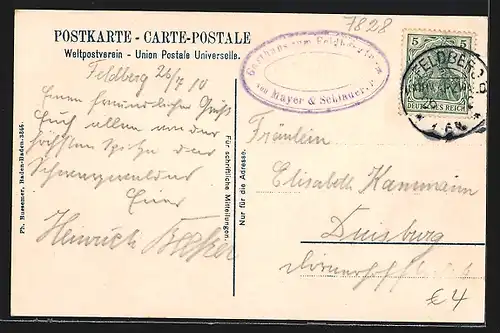 7828
POSTKARTE - CARTE-POSTALE
Weltpostverein - Union Postale Universelle.
Gasthaus zum Feldbergturm
von Mayer & Schlauer
5 5
DEUTSCHES REICH
FELDBERG
Feldberg 26/7 10
Einen freundlichen Gruß
Euch allen von der
höchsten Spitze des
Schwarzwaldes
Euer
Heinrich
Ph. Bussemer, Baden-Baden-3566.
Für schriftliche Mitteilungen.
Nur für die Adresse.
Fräulein
Elisabeth Kammann
Duisburg
€ 4